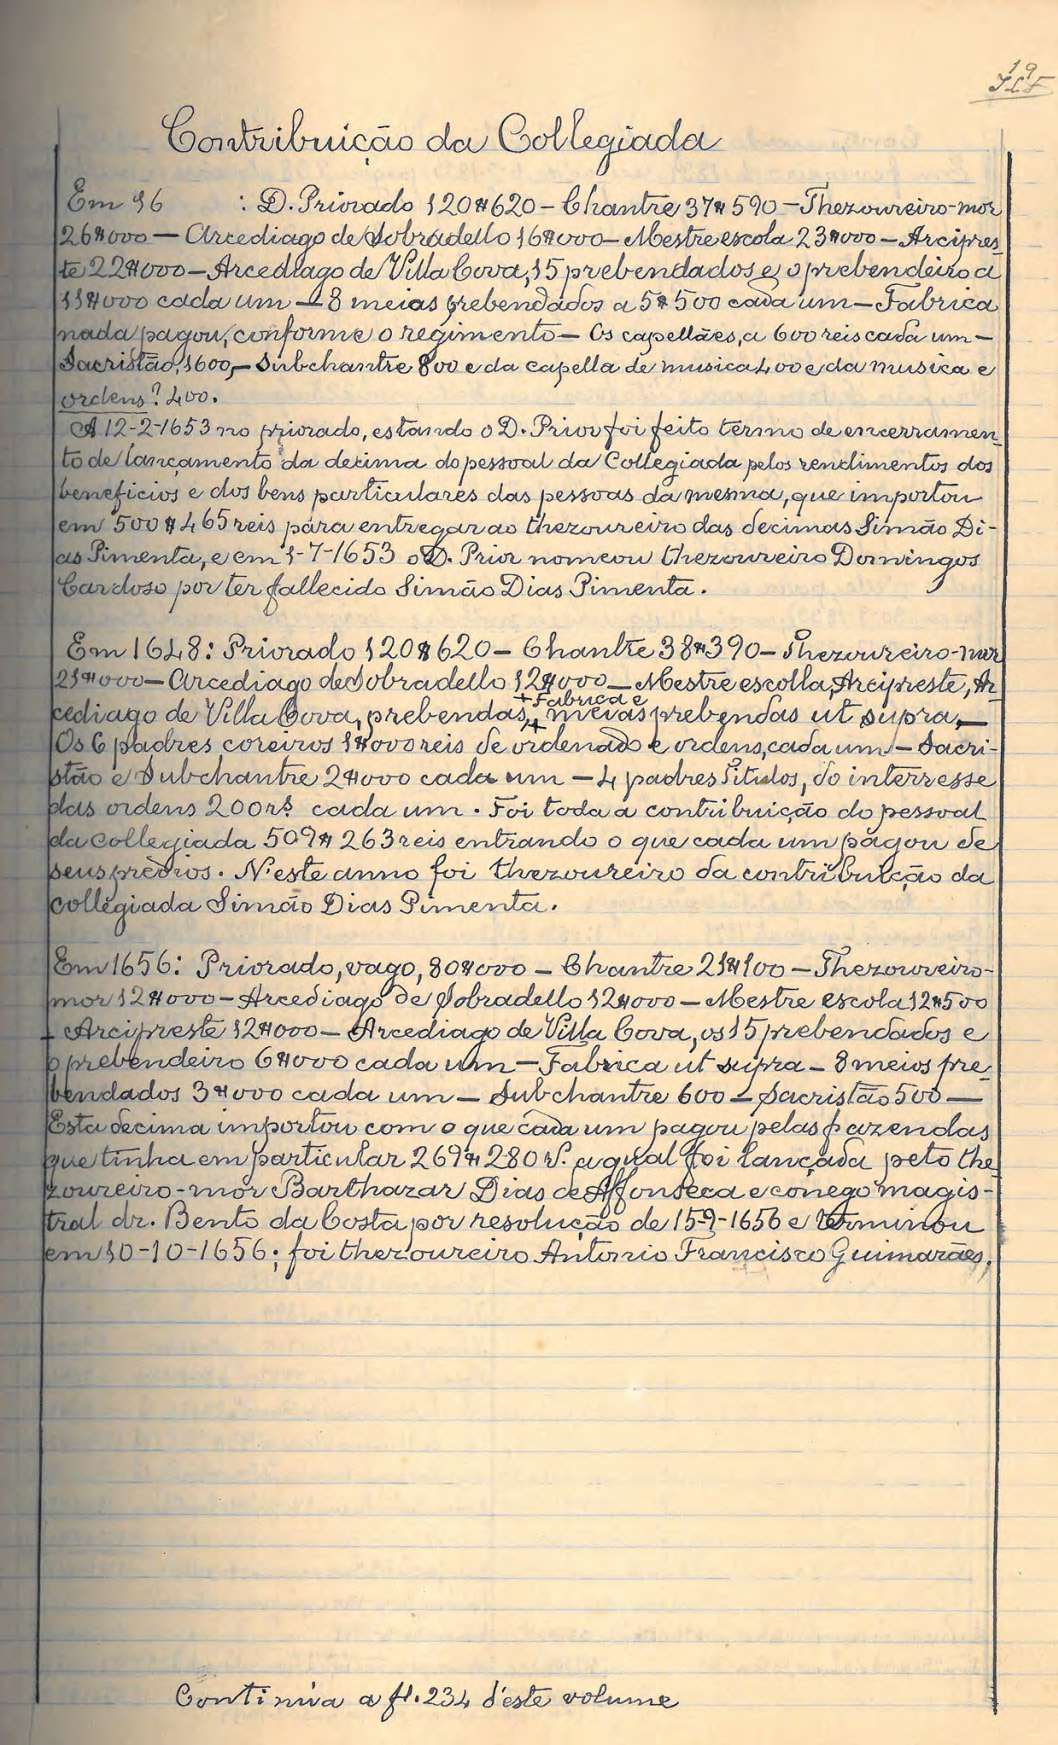 Contribuição da Collegiada
Em 16 : D. Priorado 120$620 – Chantre 37$590 – Thezoureiro-mor
26$000 – Arcediago de Sobradello 16$000 – Mestre escola 23$000 – Arcipres
te 22$000 – Arcediago de Villa Cova, 15 prebendados e o prebendeiro a
11$000 cada um – 8 meias prebendados a 5$500 cada um – Fabrica
nada pagou, conforme o regimento – Os capellães, a 600 reis cada um –
Sacristão, 1600, – Subchantre 800 e da capella de musica 400 e da musica e
ordens? 400.
A 12-2-1653 no priorado, estando o D. Prior foi feito termo de encerramen
to de lançamento da decima do pessoal da Collegiada pelos rendimentos dos
beneficios e dos bens particulares das pessoas da mesma, que importou
em 500$465 reis para entregar ao thezoureiro das decimas Simão Di-
as Pimenta, e em 1-7-1653 o D. Prior nomeou thezoureiro Domingos
Cardoso por ter fallecido Simão Dias Pimenta.
Em 1648: Priorado 120$620 – Chantre 38$390 – Thezoureiro-mor
21$000 – Arcediago de Sobradello 12$000 – Mestre escolla, Arcipreste, Ar
+ Fabrica e
cediago de Villa Cova, prebendas, + meias prebendas ut supra, –
Os 6 padres coreiros 1$000 reis de ordenado e ordens, cada um – Sacri-
stão e Subchantre 2$000 cada um – 4 padres titulos, do interresse
das ordens 200 rs. cada um. Foi toda a contribuição do pessoal
da collegiada 509$263 reis entrando o que cada um pagou de
seus predios. N'este anno foi thezoureiro da contribuição da
collegiada Simão Dias Pimenta.
Em 1656: Priorado, vago, 80$000 – Chantre 21$100 – Thezoureiro-
mor 12$000 – Arcediago de Sobradello 12$000 – Mestre escola 12$500
– Arcipreste 12$000 – Arcediago de Villa Cova, os 15 prebendados e
o prebendeiro 6$000 cada um – Fabrica ut supra – 8 meios pre
bendados 3$000 cada um – Subchantre 600 – Sacristão 500 –
Esta decima importou com o que cada um pagou pelas fazendas
que tinha em particular 269$280 rs. a qual foi lançada pelo the
zoureiro-mor Barthazar Dias de Affonseca e conego magis-
tral dr. Bento da Costa por resolução de 15-9-1656 e terminou
em 10-10-1656; foi thezoureiro Antonio Francisco Guimarães.
Continúa a fl. 234 d'este volume